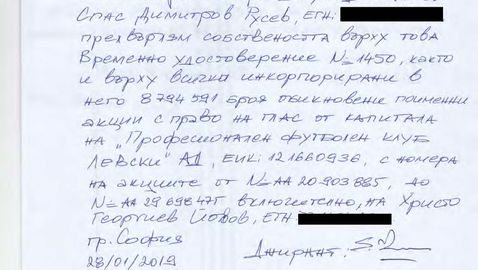 Спас Димитров Русев, ЕГН:
прехвърлям собствеността върху това
Временно удостоверение №1450, както
и върху всички инкорпорирани в
него 8 794 591 броя обикновени поименни
акции с право на глас от капитала
на „Професионален футболен клуб
Левски" АД, ЕИК: 121660936, с номера
на акциите от № АА 20 903 885, до
№ АА 29 698 475 включително, на Христо
Георгиев Йовов, ЕГН:
гр. София
28/01/2019 Джирант: